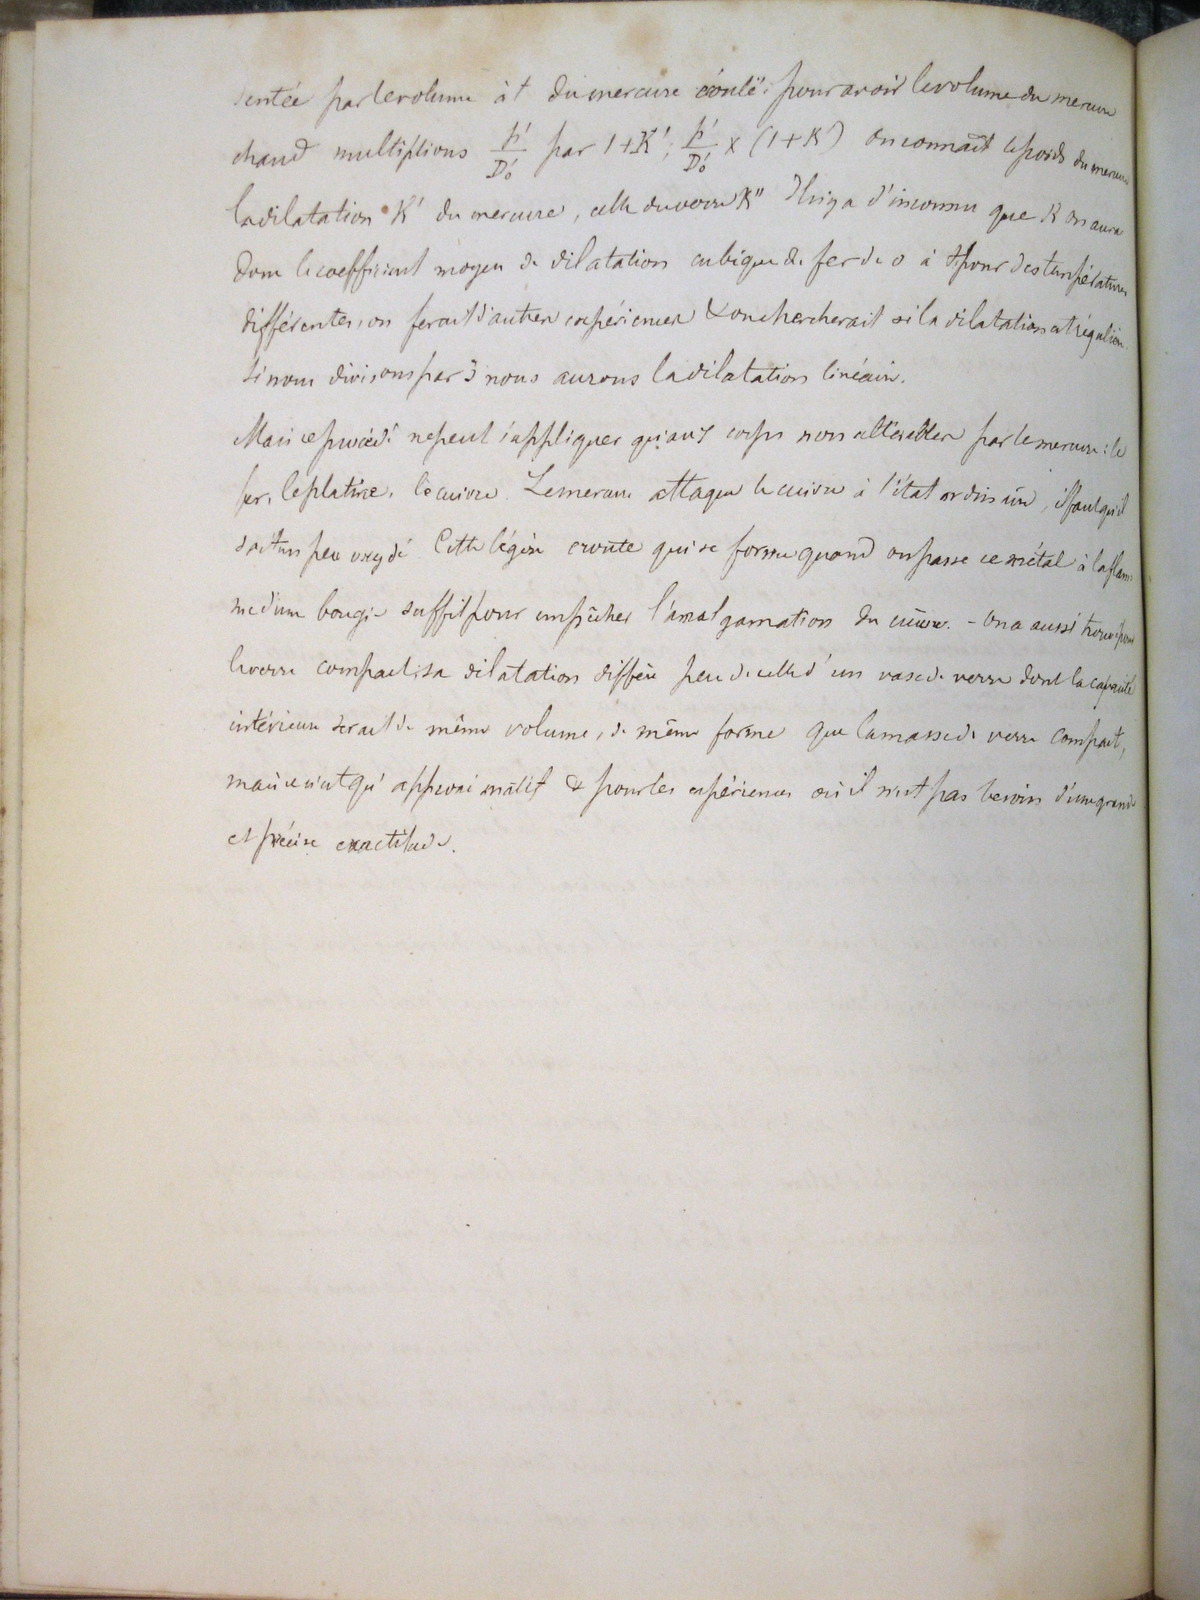 sentée par le volume à t du mercure écoulé : pour avoir le volume du mercure
chaud multiplions p'/D'₀ par 1+K' ; p'/D'₀ × (1+K') On connaît le poids du mercure
la dilatation K' du mercure, celle du verre K" Il n'y a d'inconnu que K on aura
donc le coefficient moyen de dilatation cubique du fer de 0 à t pour des températures
différentes, on ferait d'autres expériences & on chercherait si la dilatation est régulière.
Si nous divisons par 3 nous aurons la dilatation linéaire.
Mais ce procédé ne peut s'appliquer qu'aux corps non altérables par le mercure : le
fer, le platine, le cuivre. Le mercure attaque le cuivre à l'état ordinaire, il faut qu'il
soit un peu oxydé Cette légère croûte qui se forme quand on passe ce métal à la flam
me d'une bougie suffit pour empêcher l'amalgamation du cuivre. - On a aussi trouvé pour
le verre compact, sa dilatation diffère peu de celle d'un vase de verre dont la capacité
intérieure serait de même volume, de même forme que la masse de verre compact,
mais ce n'est qu'approximatif & pour les expériences où il n'est pas besoin d'une grande
et précise exactitude.